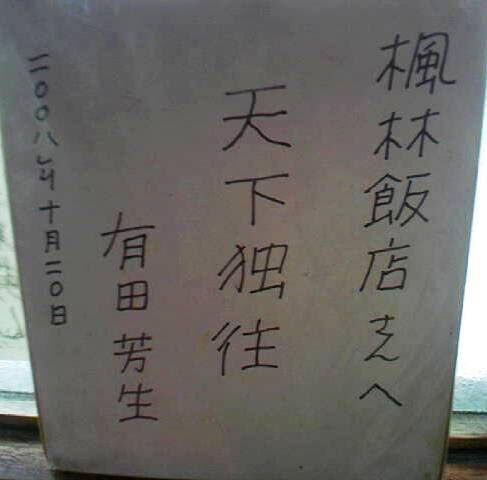 楓林飯店さんへ
天下独往
有田芳生
二〇〇八年十月二〇日